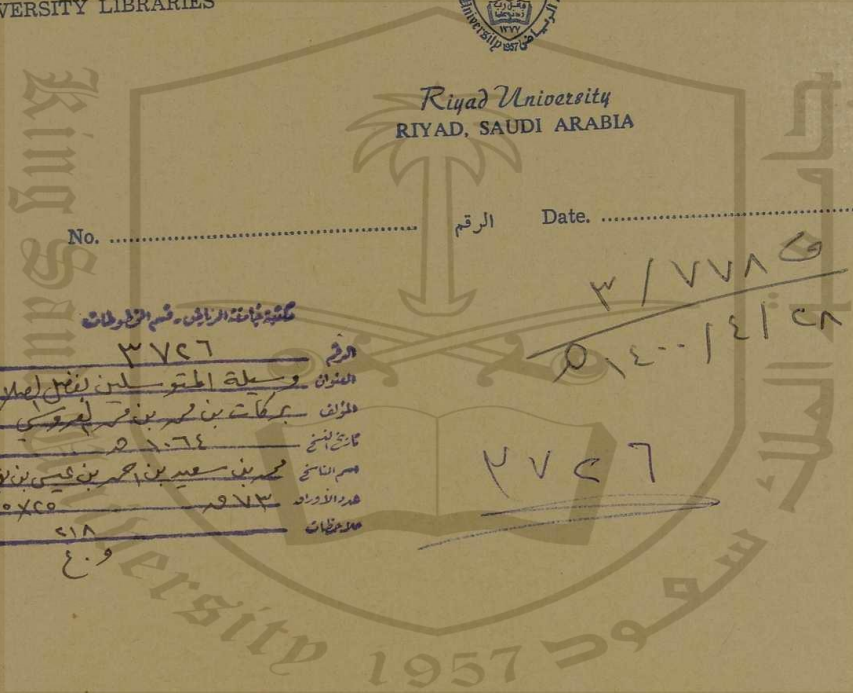 VERSITY LIBRARIES
Riyad University
RIYAD, SAUDI ARABIA
No. الرقم Date.
ف ٧٧٨ / ٣
٢٨ / ٤ / ١٤٠٠ هـ
٣٧٢٦
مكتبة جامعة الرياض - قسم المخطوطات
الرقم ٣٧٢٦
العنوان وسيلة المتوسلين بفضل الصلا
المؤلف بركات بن محمد بن محمد العروسي
تاريخ النسخ ١٠٦٤ هـ
اسم الناسخ محمد بن سعيد بن احمد بن عيسى بن
عدد الأوراق ٧٣ ق
ملاحظات ٢١٨
و . ع
King Saud University 1957
جامعة الملك سعود